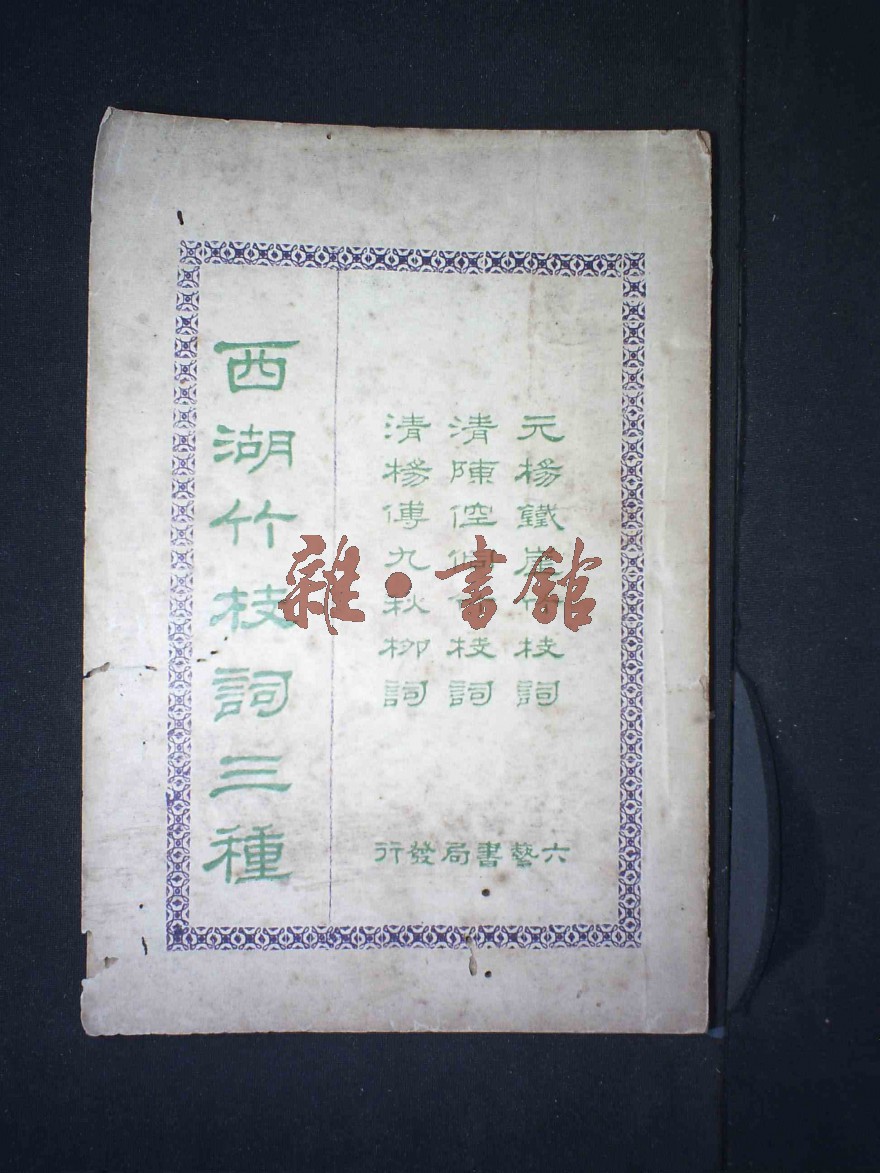 元楊鐵崖竹枝詞
清陳倥侗竹枝詞
清楊傅九秋柳詞
西湖竹枝詞三種
六藝書局發行
雜·書館